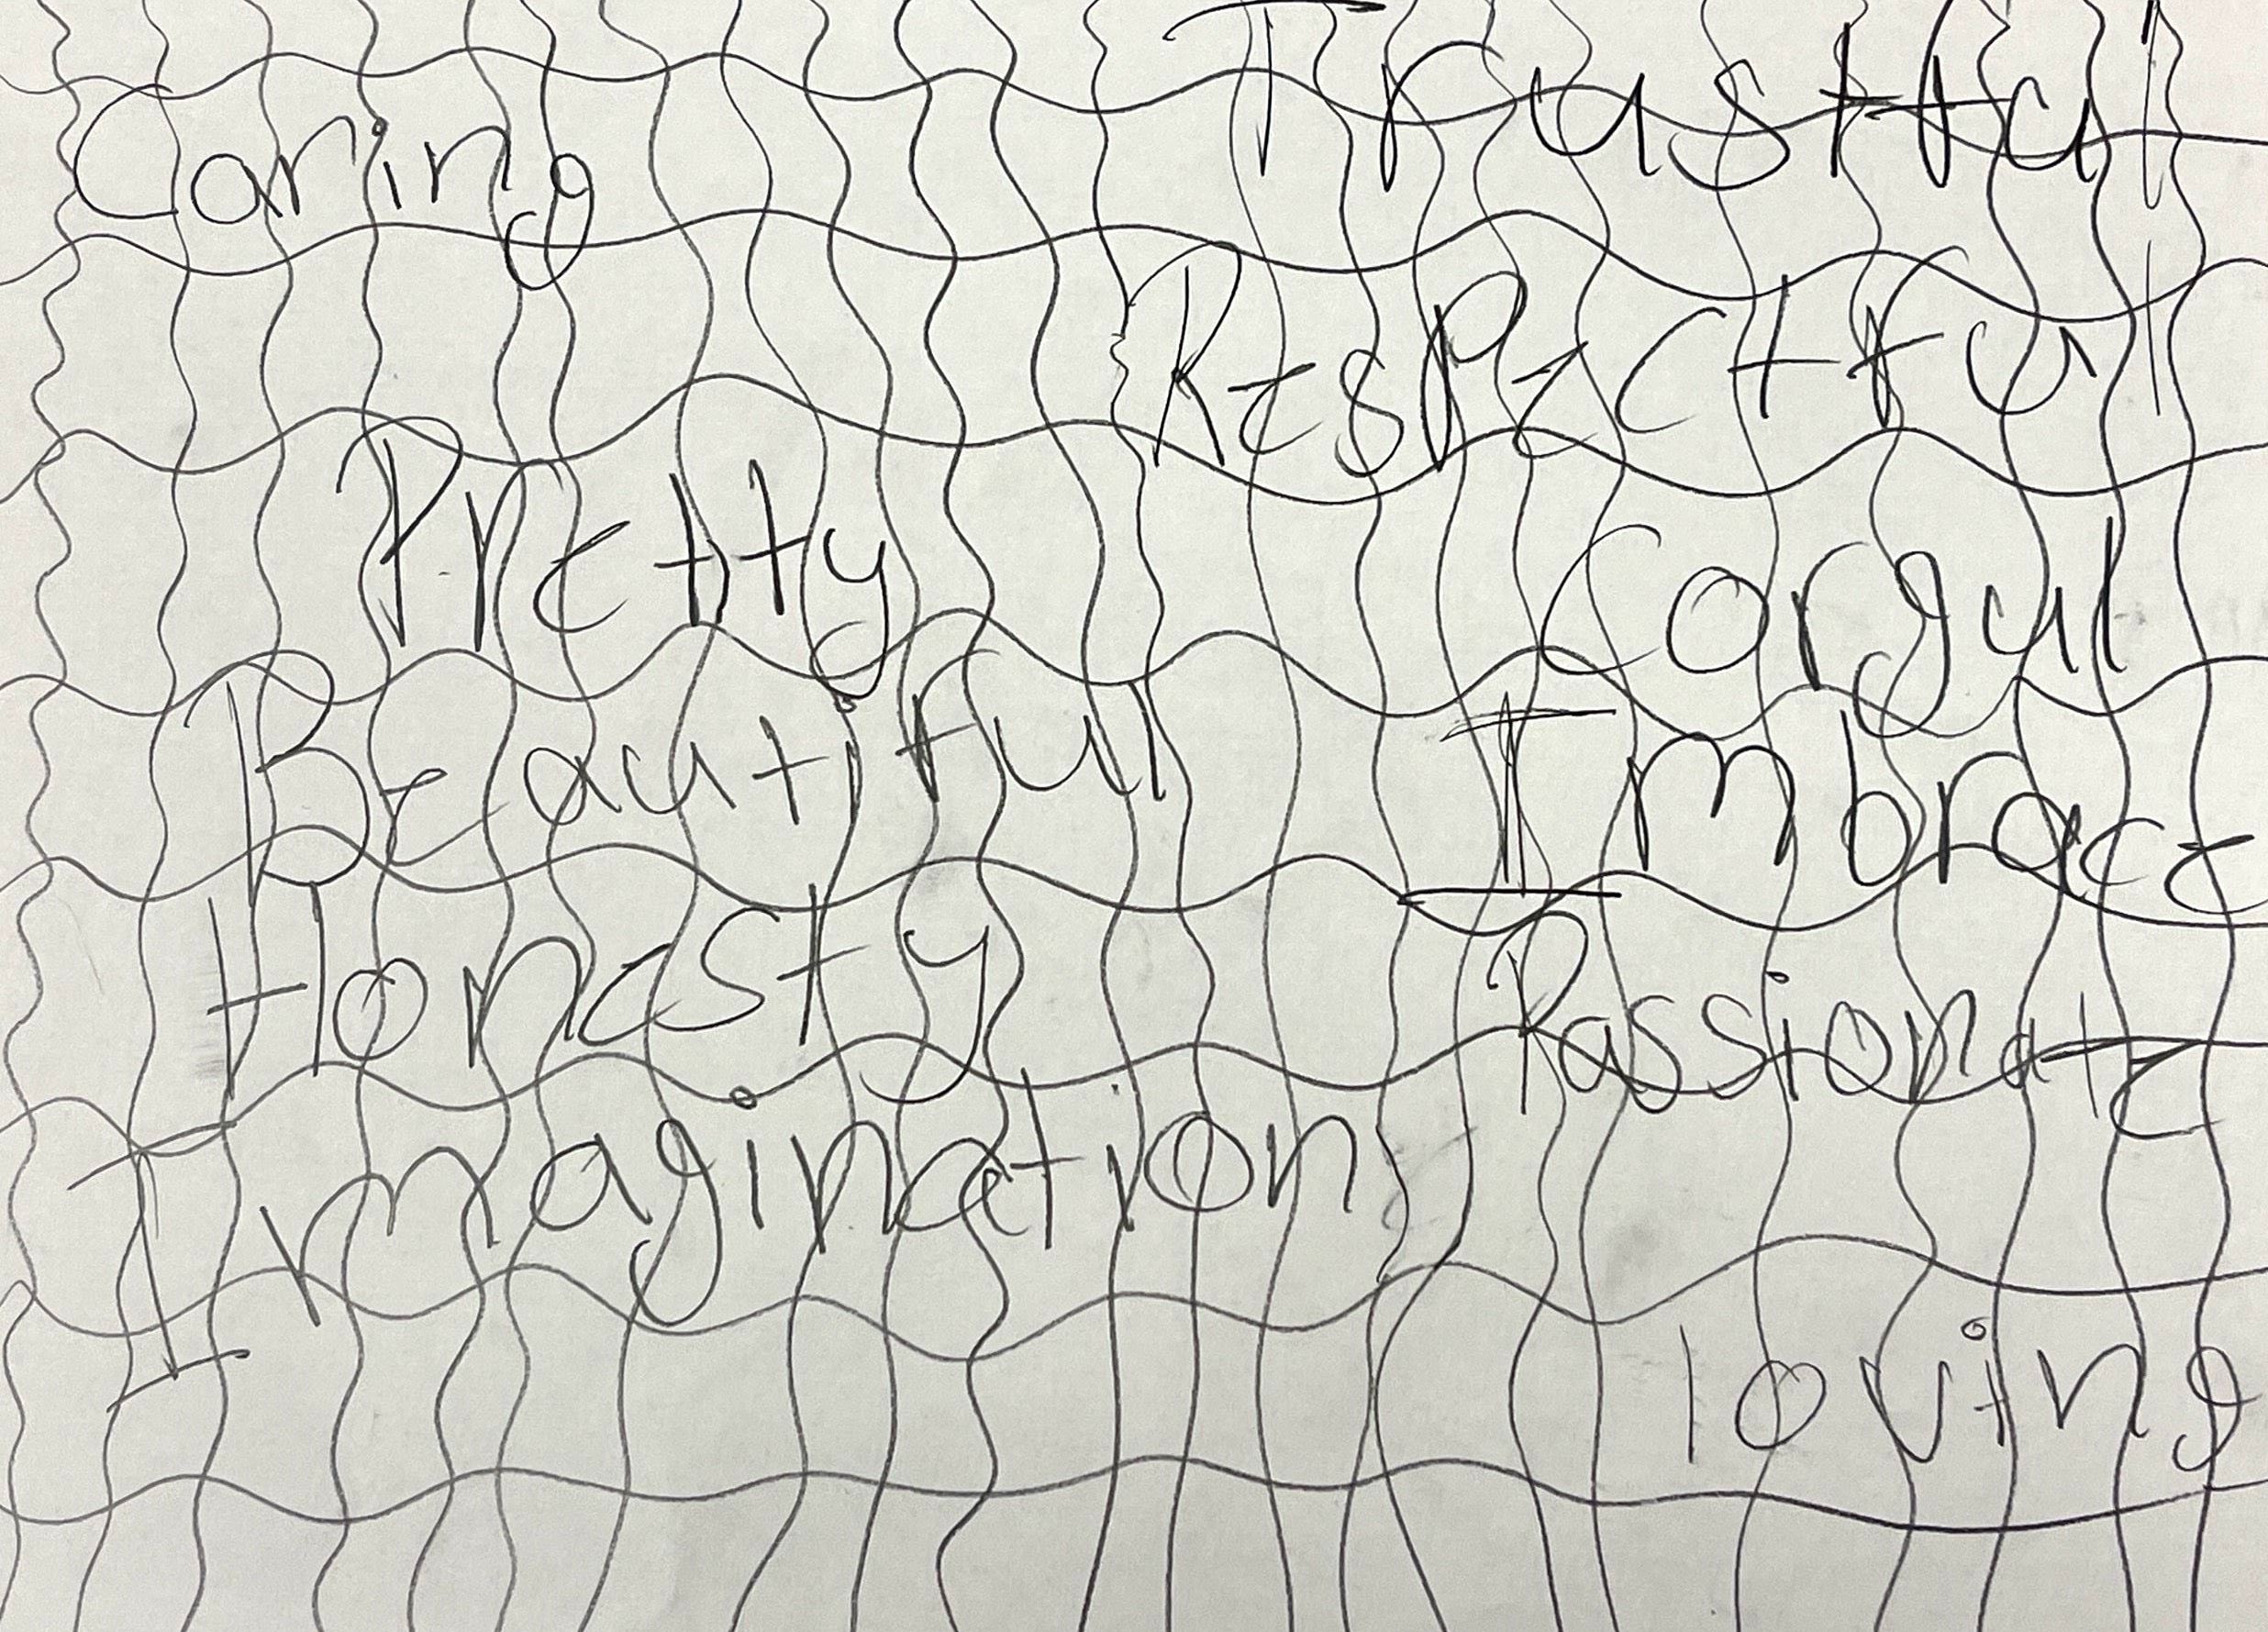 Caring
Trustful
Respectful
Pretty
Corgul
Beautiful
Imbrace
Honesty
Passionate
Imagination
loving